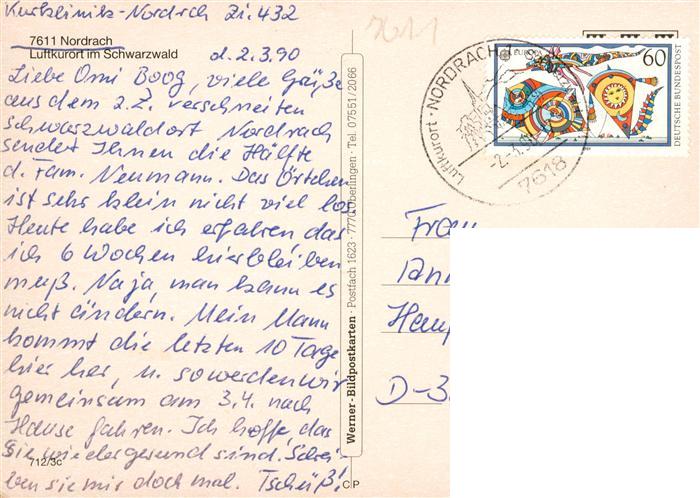 Kurklinik-Nordrach Zi. 432
7611 Nordrach
Luftkurort im Schwarzwald
d. 2.3.90
Liebe Omi Boog, viele Grüße
aus dem z.Z. verschneiten
Schwarzwaldort Nordrach
sendet Ihnen die Hälfte
d. Fam. Neumann. Das Örtchen
ist sehr klein nicht viel los
Heute habe ich erfahren das
ich 6 Wochen hierbleiben
muß. Na ja, man kann es
nicht ändern. Mein Mann
kommt die letzten 10 Tage
hier her, u. so werden wir
gemeinsam am 3.4. nach
Hause fahren. Ich hoffe, das
Sie wieder gesund sind. Schrei-
ben sie mir doch mal. Tschüß!
712/3c
CP
Werner-Bildpostkarten · Postfach 1623 · 7770 Überlingen · Tel. 07551/2066
7611
Luftkurort · NORDRACH
7618
EUROPA
60
DEUTSCHE BUNDESPOST
Frau
D-3